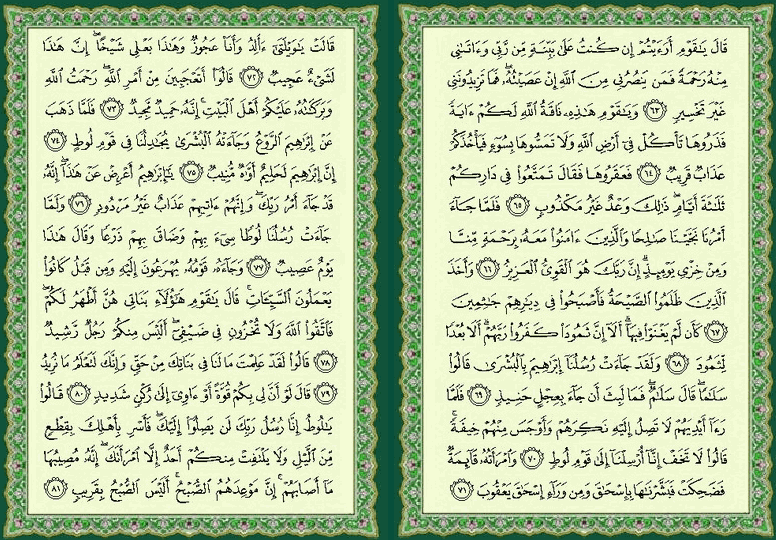 قَالَ يَٰقَوْمِ أَرَءَيْتُمْ إِن كُنتُ عَلَىٰ بَيِّنَةٍ مِّن رَّبِّى وَءَاتَىٰنِى
مِنْهُ رَحْمَةً فَمَن يَنصُرُنِى مِنَ ٱللَّهِ إِنْ عَصَيْتُهُۥ ۖ فَمَا تَزِيدُونَنِى
غَيْرَ تَخْسِيرٍ ﴿٦٣﴾ وَيَٰقَوْمِ هَٰذِهِۦ نَاقَةُ ٱللَّهِ لَكُمْ ءَايَةً
فَذَرُوهَا تَأْكُلْ فِىٓ أَرْضِ ٱللَّهِ وَلَا تَمَسُّوهَا بِسُوٓءٍ فَيَأْخُذَكُمْ
عَذَابٌ قَرِيبٌ ﴿٦٤﴾ فَعَقَرُوهَا فَقَالَ تَمَتَّعُوا۟ فِى دَارِكُمْ
ثَلَٰثَةَ أَيَّامٍ ۖ ذَٰلِكَ وَعْدٌ غَيْرُ مَكْذُوبٍ ﴿٦٥﴾ فَلَمَّا جَآءَ
أَمْرُنَا نَجَّيْنَا صَٰلِحًا وَٱلَّذِينَ ءَامَنُوا۟ مَعَهُۥ بِرَحْمَةٍ مِّنَّا
وَمِنْ خِزْىِ يَوْمِئِذٍ ۗ إِنَّ رَبَّكَ هُوَ ٱلْقَوِىُّ ٱلْعَزِيزُ ﴿٦٦﴾ وَأَخَذَ
ٱلَّذِينَ ظَلَمُوا۟ ٱلصَّيْحَةُ فَأَصْبَحُوا۟ فِى دِيَٰرِهِمْ جَٰثِمِينَ
﴿٦٧﴾ كَأَن لَّمْ يَغْنَوْا۟ فِيهَآ ۗ أَلَآ إِنَّ ثَمُودَا۟ كَفَرُوا۟ رَبَّهُمْ ۗ أَلَا بُعْدًا
لِّثَمُودَ ﴿٦٨﴾ وَلَقَدْ جَآءَتْ رُسُلُنَآ إِبْرَٰهِيمَ بِٱلْبُشْرَىٰ قَالُوا۟
سَلَٰمًا ۖ قَالَ سَلَٰمٌ ۖ فَمَا لَبِثَ أَن جَآءَ بِعِجْلٍ حَنِيذٍ ﴿٦٩﴾ فَلَمَّا
رَءَآ أَيْدِيَهُمْ لَا تَصِلُ إِلَيْهِ نَكِرَهُمْ وَأَوْجَسَ مِنْهُمْ خِيفَةً ۚ
قَالُوا۟ لَا تَخَفْ إِنَّآ أُرْسِلْنَآ إِلَىٰ قَوْمِ لُوطٍ ﴿٧٠﴾ وَٱمْرَأَتُهُۥ قَآئِمَةٌ
فَضَحِكَتْ فَبَشَّرْنَٰهَا بِإِسْحَٰقَ وَمِن وَرَآءِ إِسْحَٰقَ يَعْقُوبَ ﴿٧١﴾
قَالَتْ يَٰوَيْلَتَىٰٓ ءَأَلِدُ وَأَنَا۠ عَجُوزٌ وَهَٰذَا بَعْلِى شَيْخًا ۖ إِنَّ هَٰذَا
لَشَىْءٌ عَجِيبٌ ﴿٧٢﴾ قَالُوٓا۟ أَتَعْجَبِينَ مِنْ أَمْرِ ٱللَّهِ ۖ رَحْمَتُ ٱللَّهِ
وَبَرَكَٰتُهُۥ عَلَيْكُمْ أَهْلَ ٱلْبَيْتِ ۚ إِنَّهُۥ حَمِيدٌ مَّجِيدٌ ﴿٧٣﴾ فَلَمَّا ذَهَبَ
عَنْ إِبْرَٰهِيمَ ٱلرَّوْعُ وَجَآءَتْهُ ٱلْبُشْرَىٰ يُجَٰدِلُنَا فِى قَوْمِ لُوطٍ ﴿٧٤﴾
إِنَّ إِبْرَٰهِيمَ لَحَلِيمٌ أَوَّٰهٌ مُّنِيبٌ ﴿٧٥﴾ يَٰٓإِبْرَٰهِيمُ أَعْرِضْ عَنْ هَٰذَآ ۖ إِنَّهُۥ
قَدْ جَآءَ أَمْرُ رَبِّكَ ۖ وَإِنَّهُمْ ءَاتِيهِمْ عَذَابٌ غَيْرُ مَرْدُودٍ ﴿٧٦﴾ وَلَمَّا
جَآءَتْ رُسُلُنَا لُوطًا سِىٓءَ بِهِمْ وَضَاقَ بِهِمْ ذَرْعًا وَقَالَ هَٰذَا
يَوْمٌ عَصِيبٌ ﴿٧٧﴾ وَجَآءَهُۥ قَوْمُهُۥ يُهْرَعُونَ إِلَيْهِ وَمِن قَبْلُ كَانُوا۟
يَعْمَلُونَ ٱلسَّيِّـَٔاتِ ۚ قَالَ يَٰقَوْمِ هَٰٓؤُلَآءِ بَنَاتِى هُنَّ أَطْهَرُ لَكُمْ ۖ
فَٱتَّقُوا۟ ٱللَّهَ وَلَا تُخْزُونِ فِى ضَيْفِىٓ ۖ أَلَيْسَ مِنكُمْ رَجُلٌ رَّشِيدٌ
﴿٧٨﴾ قَالُوا۟ لَقَدْ عَلِمْتَ مَا لَنَا فِى بَنَاتِكَ مِنْ حَقٍّ وَإِنَّكَ لَتَعْلَمُ مَا نُرِيدُ
﴿٧٩﴾ قَالَ لَوْ أَنَّ لِى بِكُمْ قُوَّةً أَوْ ءَاوِىٓ إِلَىٰ رُكْنٍ شَدِيدٍ ﴿٨٠﴾ قَالُوا۟
يَٰلُوطُ إِنَّا رُسُلُ رَبِّكَ لَن يَصِلُوٓا۟ إِلَيْكَ ۖ فَأَسْرِ بِأَهْلِكَ بِقِطْعٍ
مِّنَ ٱلَّيْلِ وَلَا يَلْتَفِتْ مِنكُمْ أَحَدٌ إِلَّا ٱمْرَأَتَكَ ۖ إِنَّهُۥ مُصِيبُهَا
مَآ أَصَابَهُمْ ۚ إِنَّ مَوْعِدَهُمُ ٱلصُّبْحُ ۚ أَلَيْسَ ٱلصُّبْحُ بِقَرِيبٍ ﴿٨١﴾